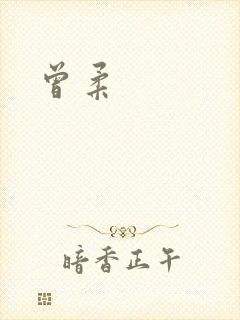 曾柔
暗香正午